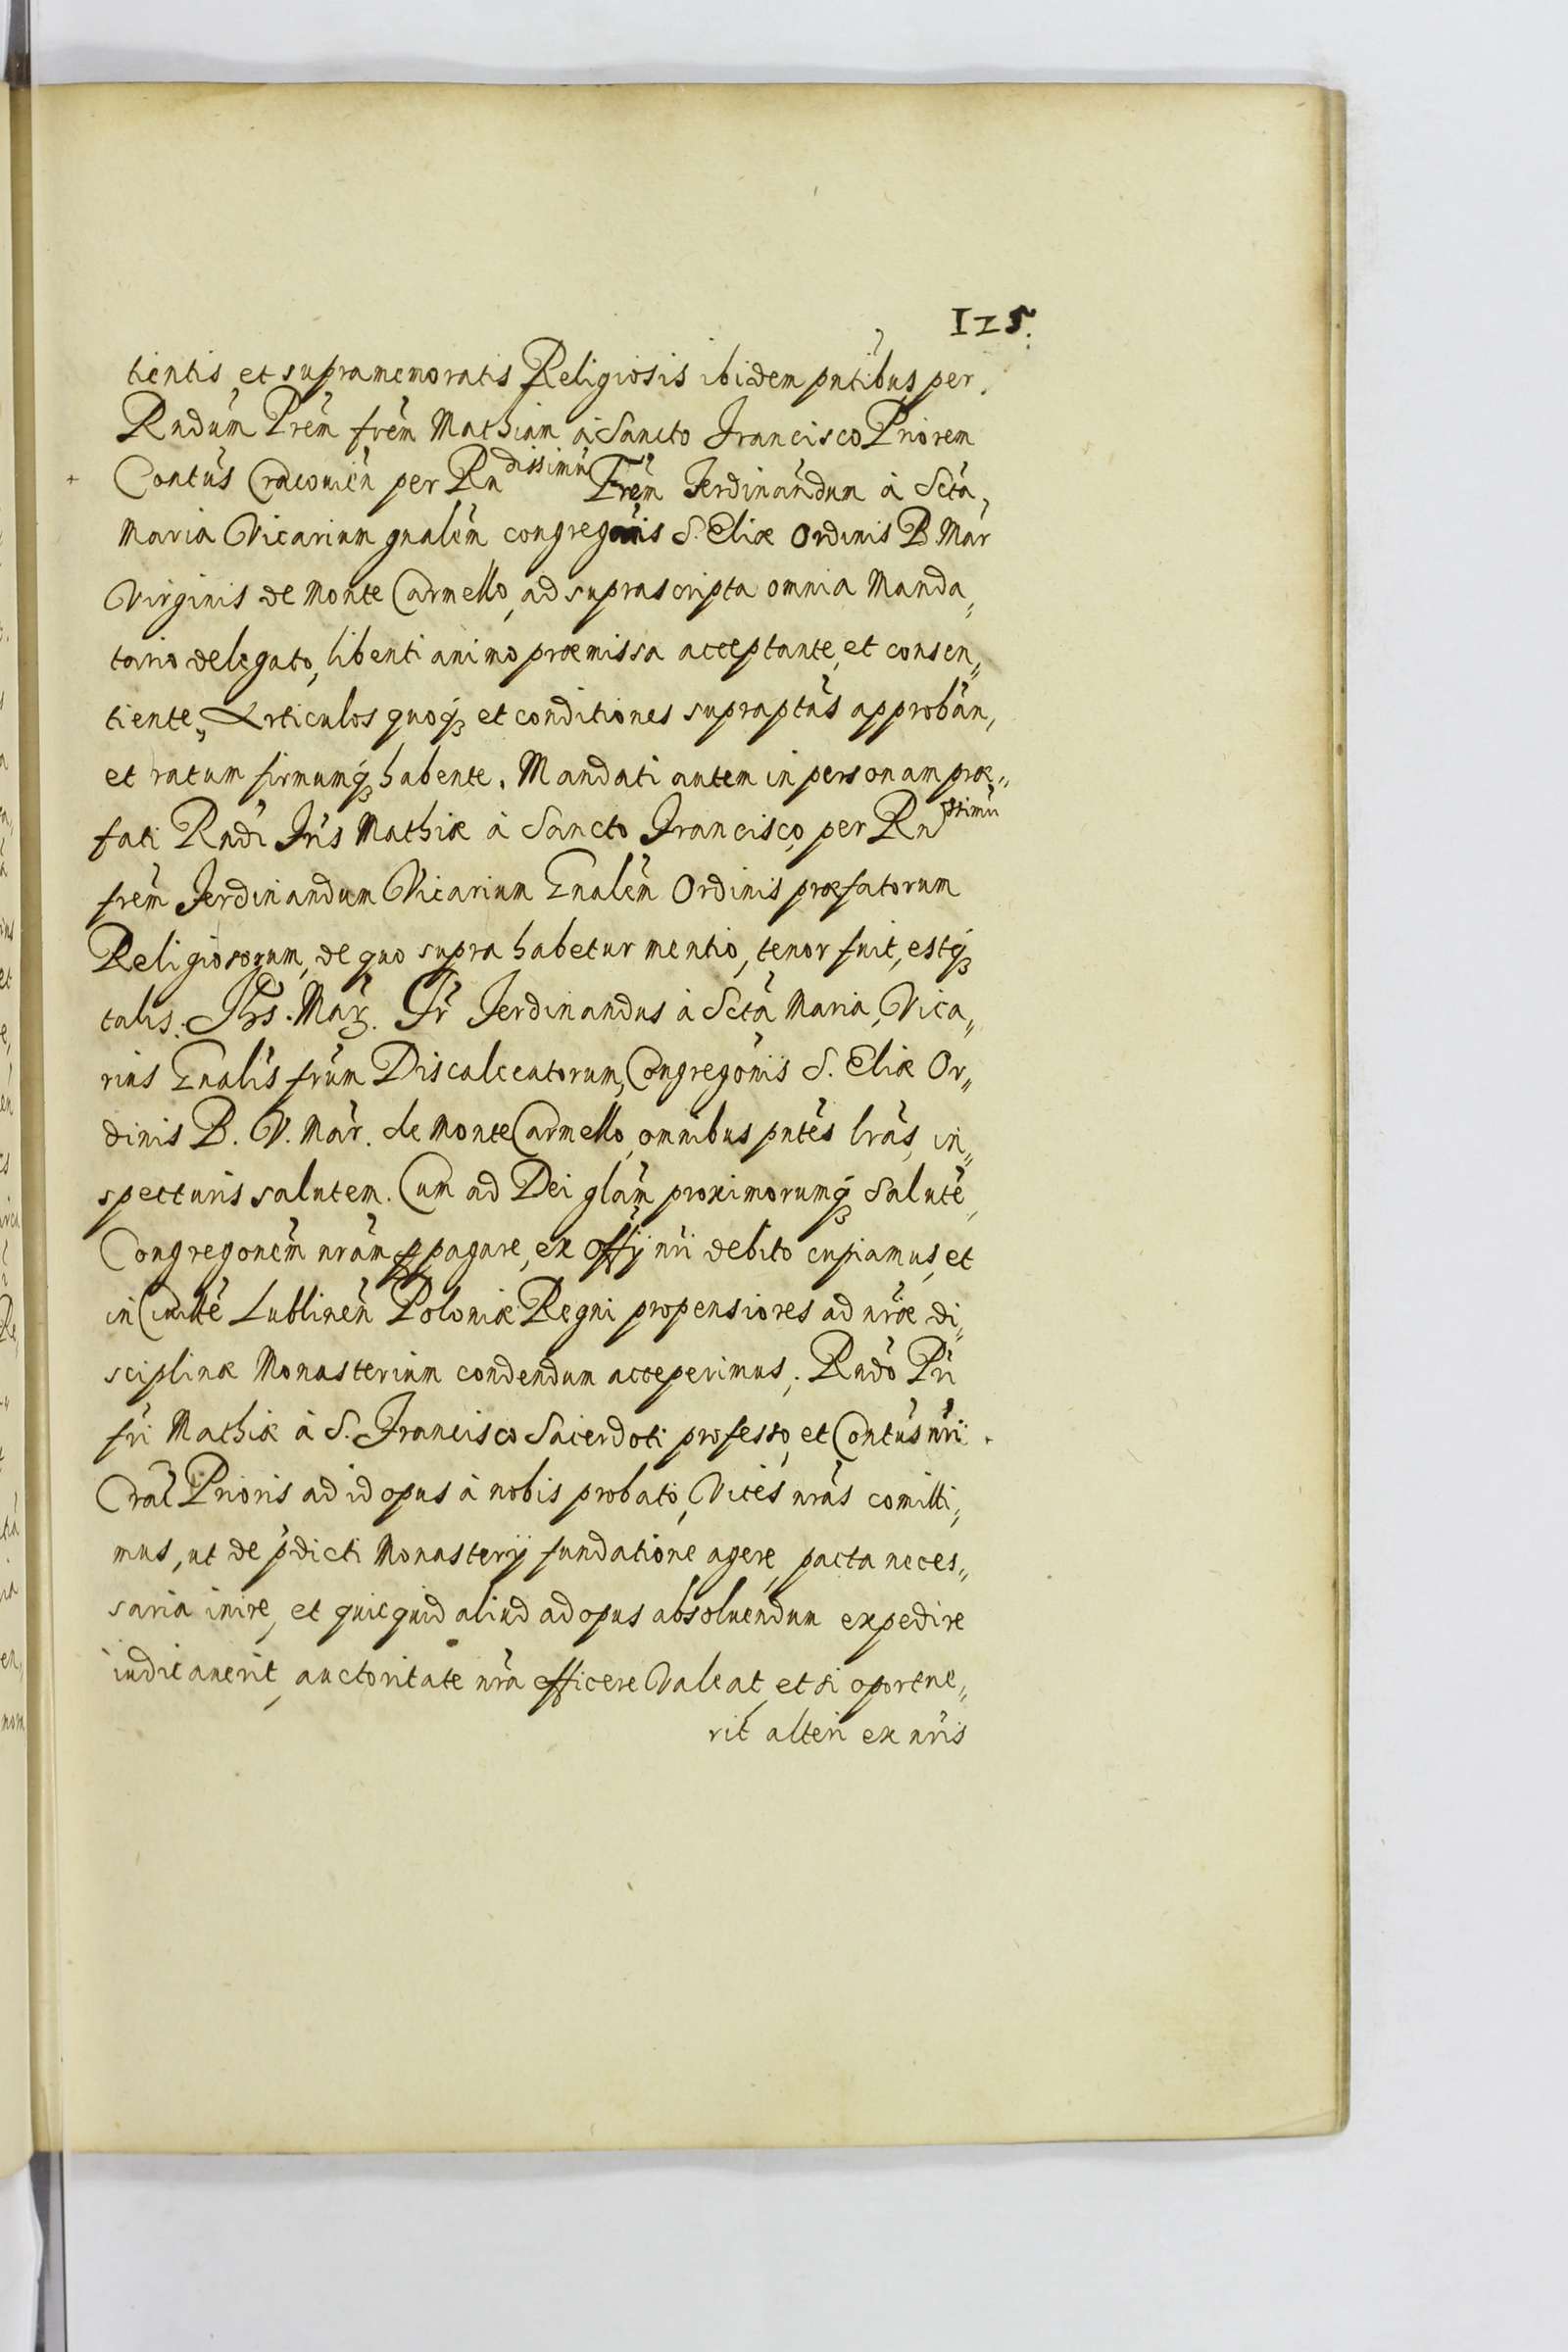 125.
tientis, et supramemoratis Religiosis ibidem pntibus, per
Rndum Prem frem Mathiam à Sancto Francisco Priorem
Contus Cracouien per Rndissimu Frem Ferdinandum à Scta
Maria Vicarium gnalem congregonis S. Eliæ Ordinis B Mar
Virginis de Monte Carmello, ad suprascripta omnia Manda„
tario delegato, libenti animo præmissa acceptante, et consen„
tiente, Articulos quoq; et conditiones supraptas approban,
et ratum firmumq; habente. Mandati autem in personam præ„
fati Rndi Fris Mathiæ à Sancto Francisco, per Rndssimu
frem Ferdinandum Vicarium Gnalem Ordinis præfatorum
Religiosorum, de quo supra habetur mentio, tenor fuit, estq;
talis. Jhs. Mar. Fr Ferdinandus à Scta Maria, Vica„
rius Gnalis frum Discalceatorum, Congregonis S. Eliæ Or„
dinis B. V. Mar. de Monte Carmello, omnibus pntes lras, in„
specturis salutem. Cum ad Dei glam proximorumq; Salute,
Congregonem nram ppagare, ex offij nri debito cupiamus, et
in Ciuitte Lublinen Poloniæ Regni propensiores ad nræ di„
sciplinæ Monasterium condendum acceperimus; Rndo Pri
fri Mathiæ à S. Francisco Sacerdoti professo, et Contus nri
Crac Prioris ad id opus à nobis probato, Vices nras comitti„
mus, ut de pdicti Monasterij fundatione agere, pacta neces„
saria inire, et quicquid aliud ad opus absoluendum expedire
iudicauerit, auctoritate nra efficere Valeat, et si oportue„
rit alteri ex nris